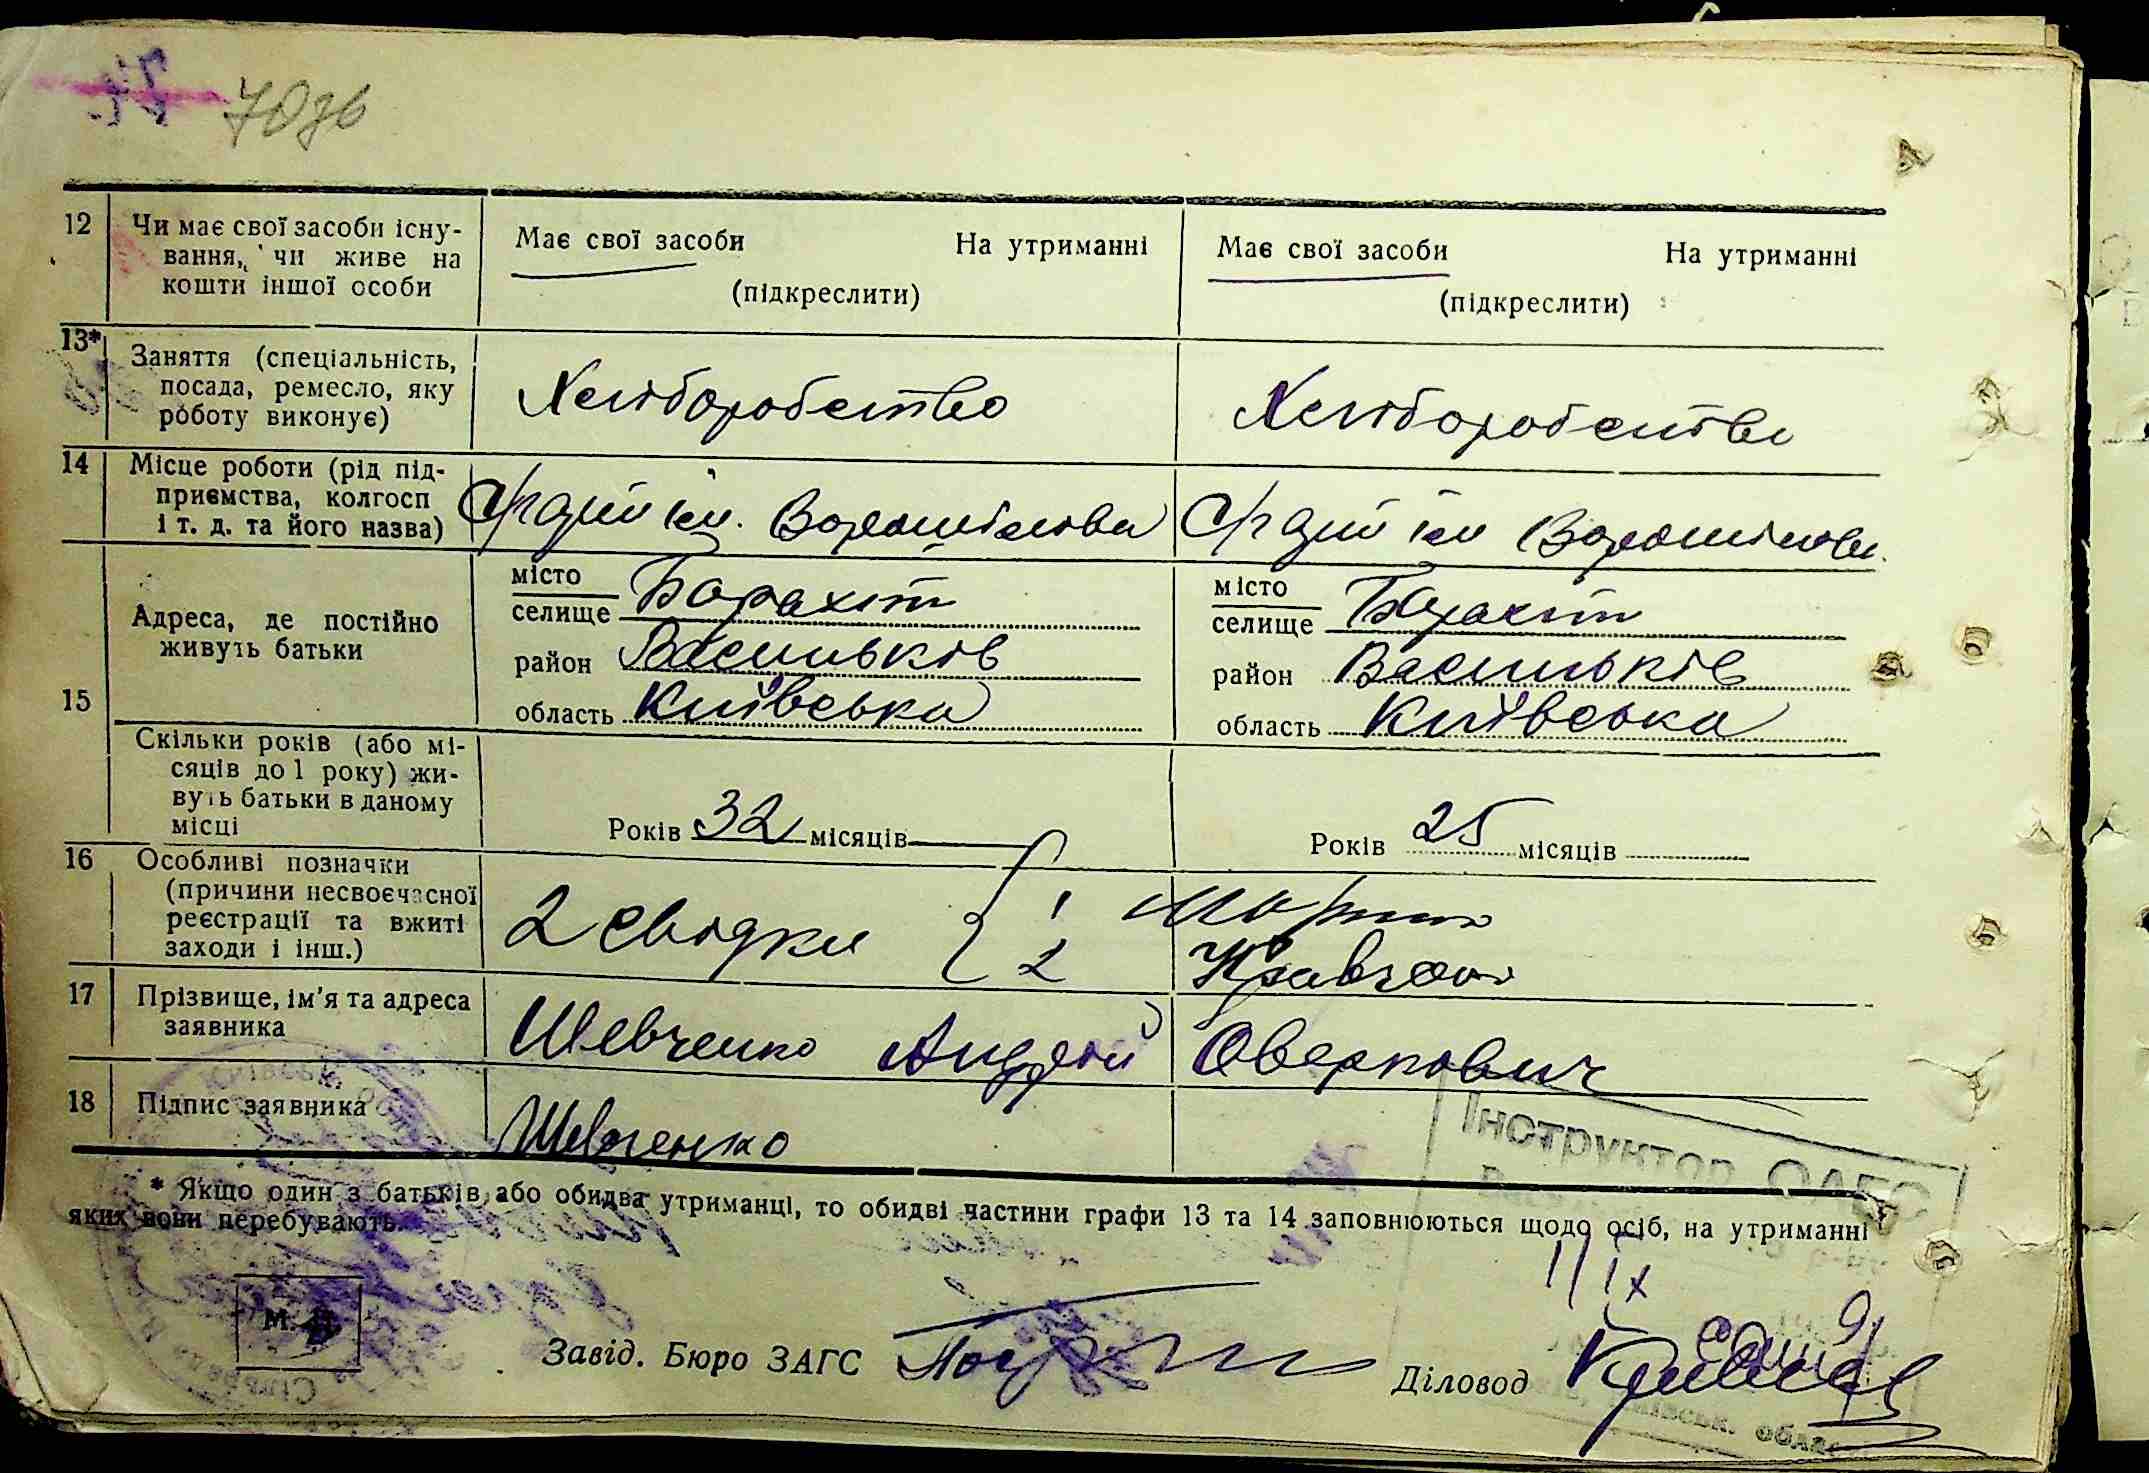 70зв
12 Чи має свої засоби існу-
вання, чи живе на
кошти іншої особи
Має свої засоби На утриманні
(підкреслити)
Має свої засоби На утриманні
(підкреслити)
13* Заняття (спеціальність,
посада, ремесло, яку
роботу виконує)
Хліборобство
Хліборобство
14 Місце роботи (рід під-
приємства, колгосп
і т. д. та його назва)
ім. Ворошилова
ім Ворошилова
15
Адреса, де постійно
живуть батьки
місто
селище Барахти
район Васильків
область Київська
місто
селище Барахти
район Васильків
область Київська
Скільки років (або мі-
сяців до 1 року) жи-
вуть батьки в даному
місці
Років 32 місяців
Років 25 місяців
16 Особливі позначки
(причини несвоєчасної
реєстрації та вжиті
заходи і інш.)
2 свідки 1
2 Кравченко
17 Прізвище, ім'я та адреса
заявника
Шевченко Андрій Оверкович
18 Підпис заявника
Шевченко
* Якщо один з батьків або обидва утриманці, то обидві частини графи 13 та 14 заповнюються щодо осіб, на утриманні
яких вони перебувають.
Інструктор ОАГС
11/IX
М. П.
Завід. Бюро ЗАГС
Діловод